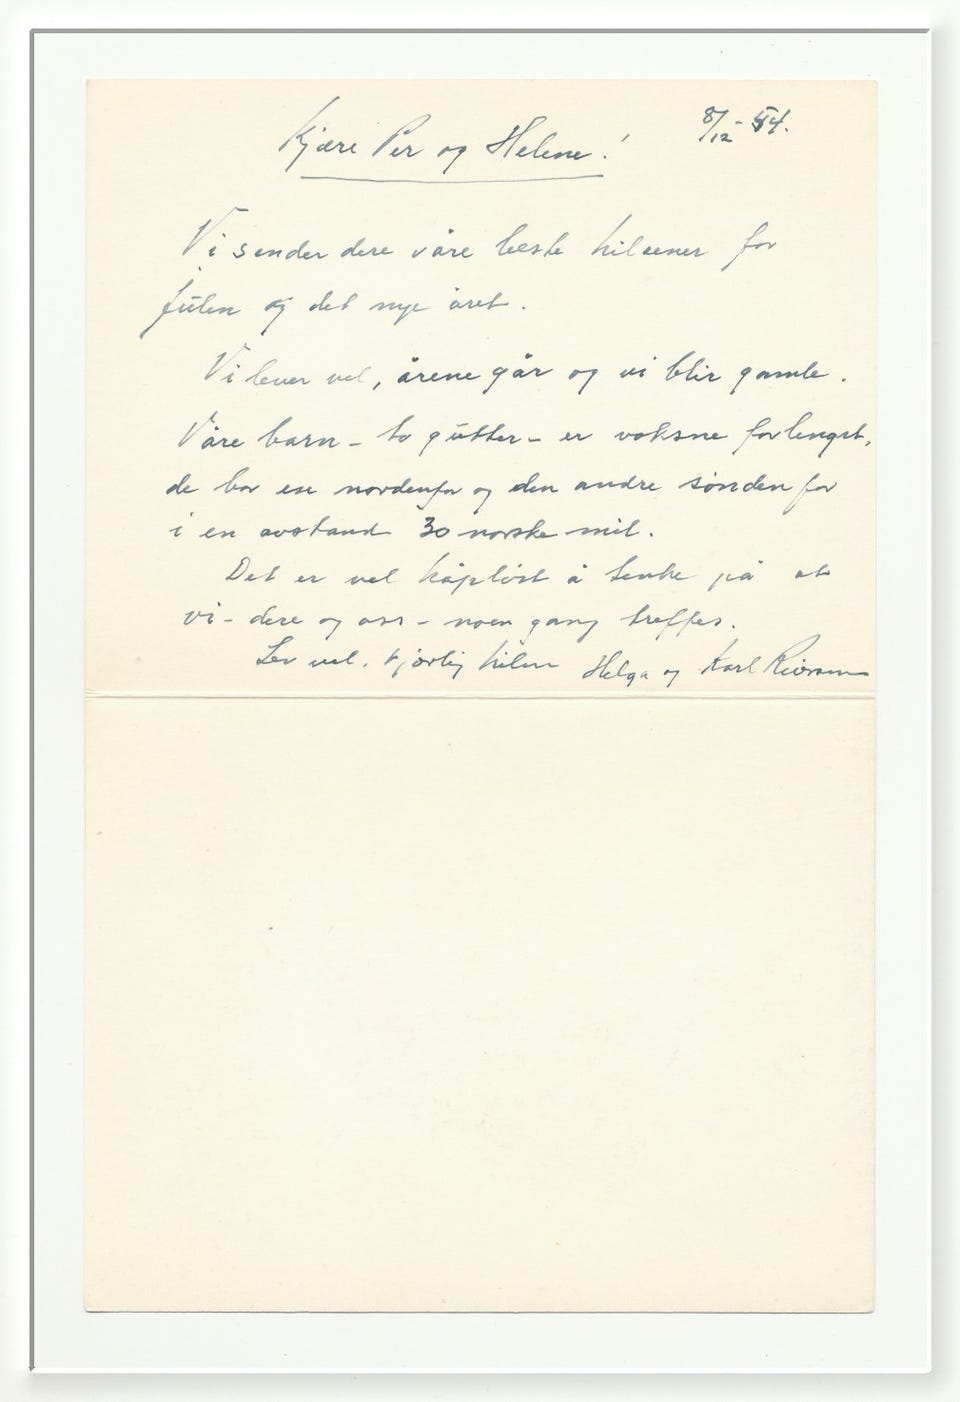 8/12 - 54.
Kjære Per og Helene!
Vi sender dere våre beste hilsener for
julen og det nye året.
Vi lever vel, årene går og vi blir gamle.
Våre barn - to gutter - er voksne forlengst,
de bor ene nordenfor og den andre sønden for
i en avstand 30 norske mil.
Det er vel håpløst å tenke på at
vi - dere og oss - noen gang treffes.
Lev vel. Kjærlig hilsen Helga og Karl